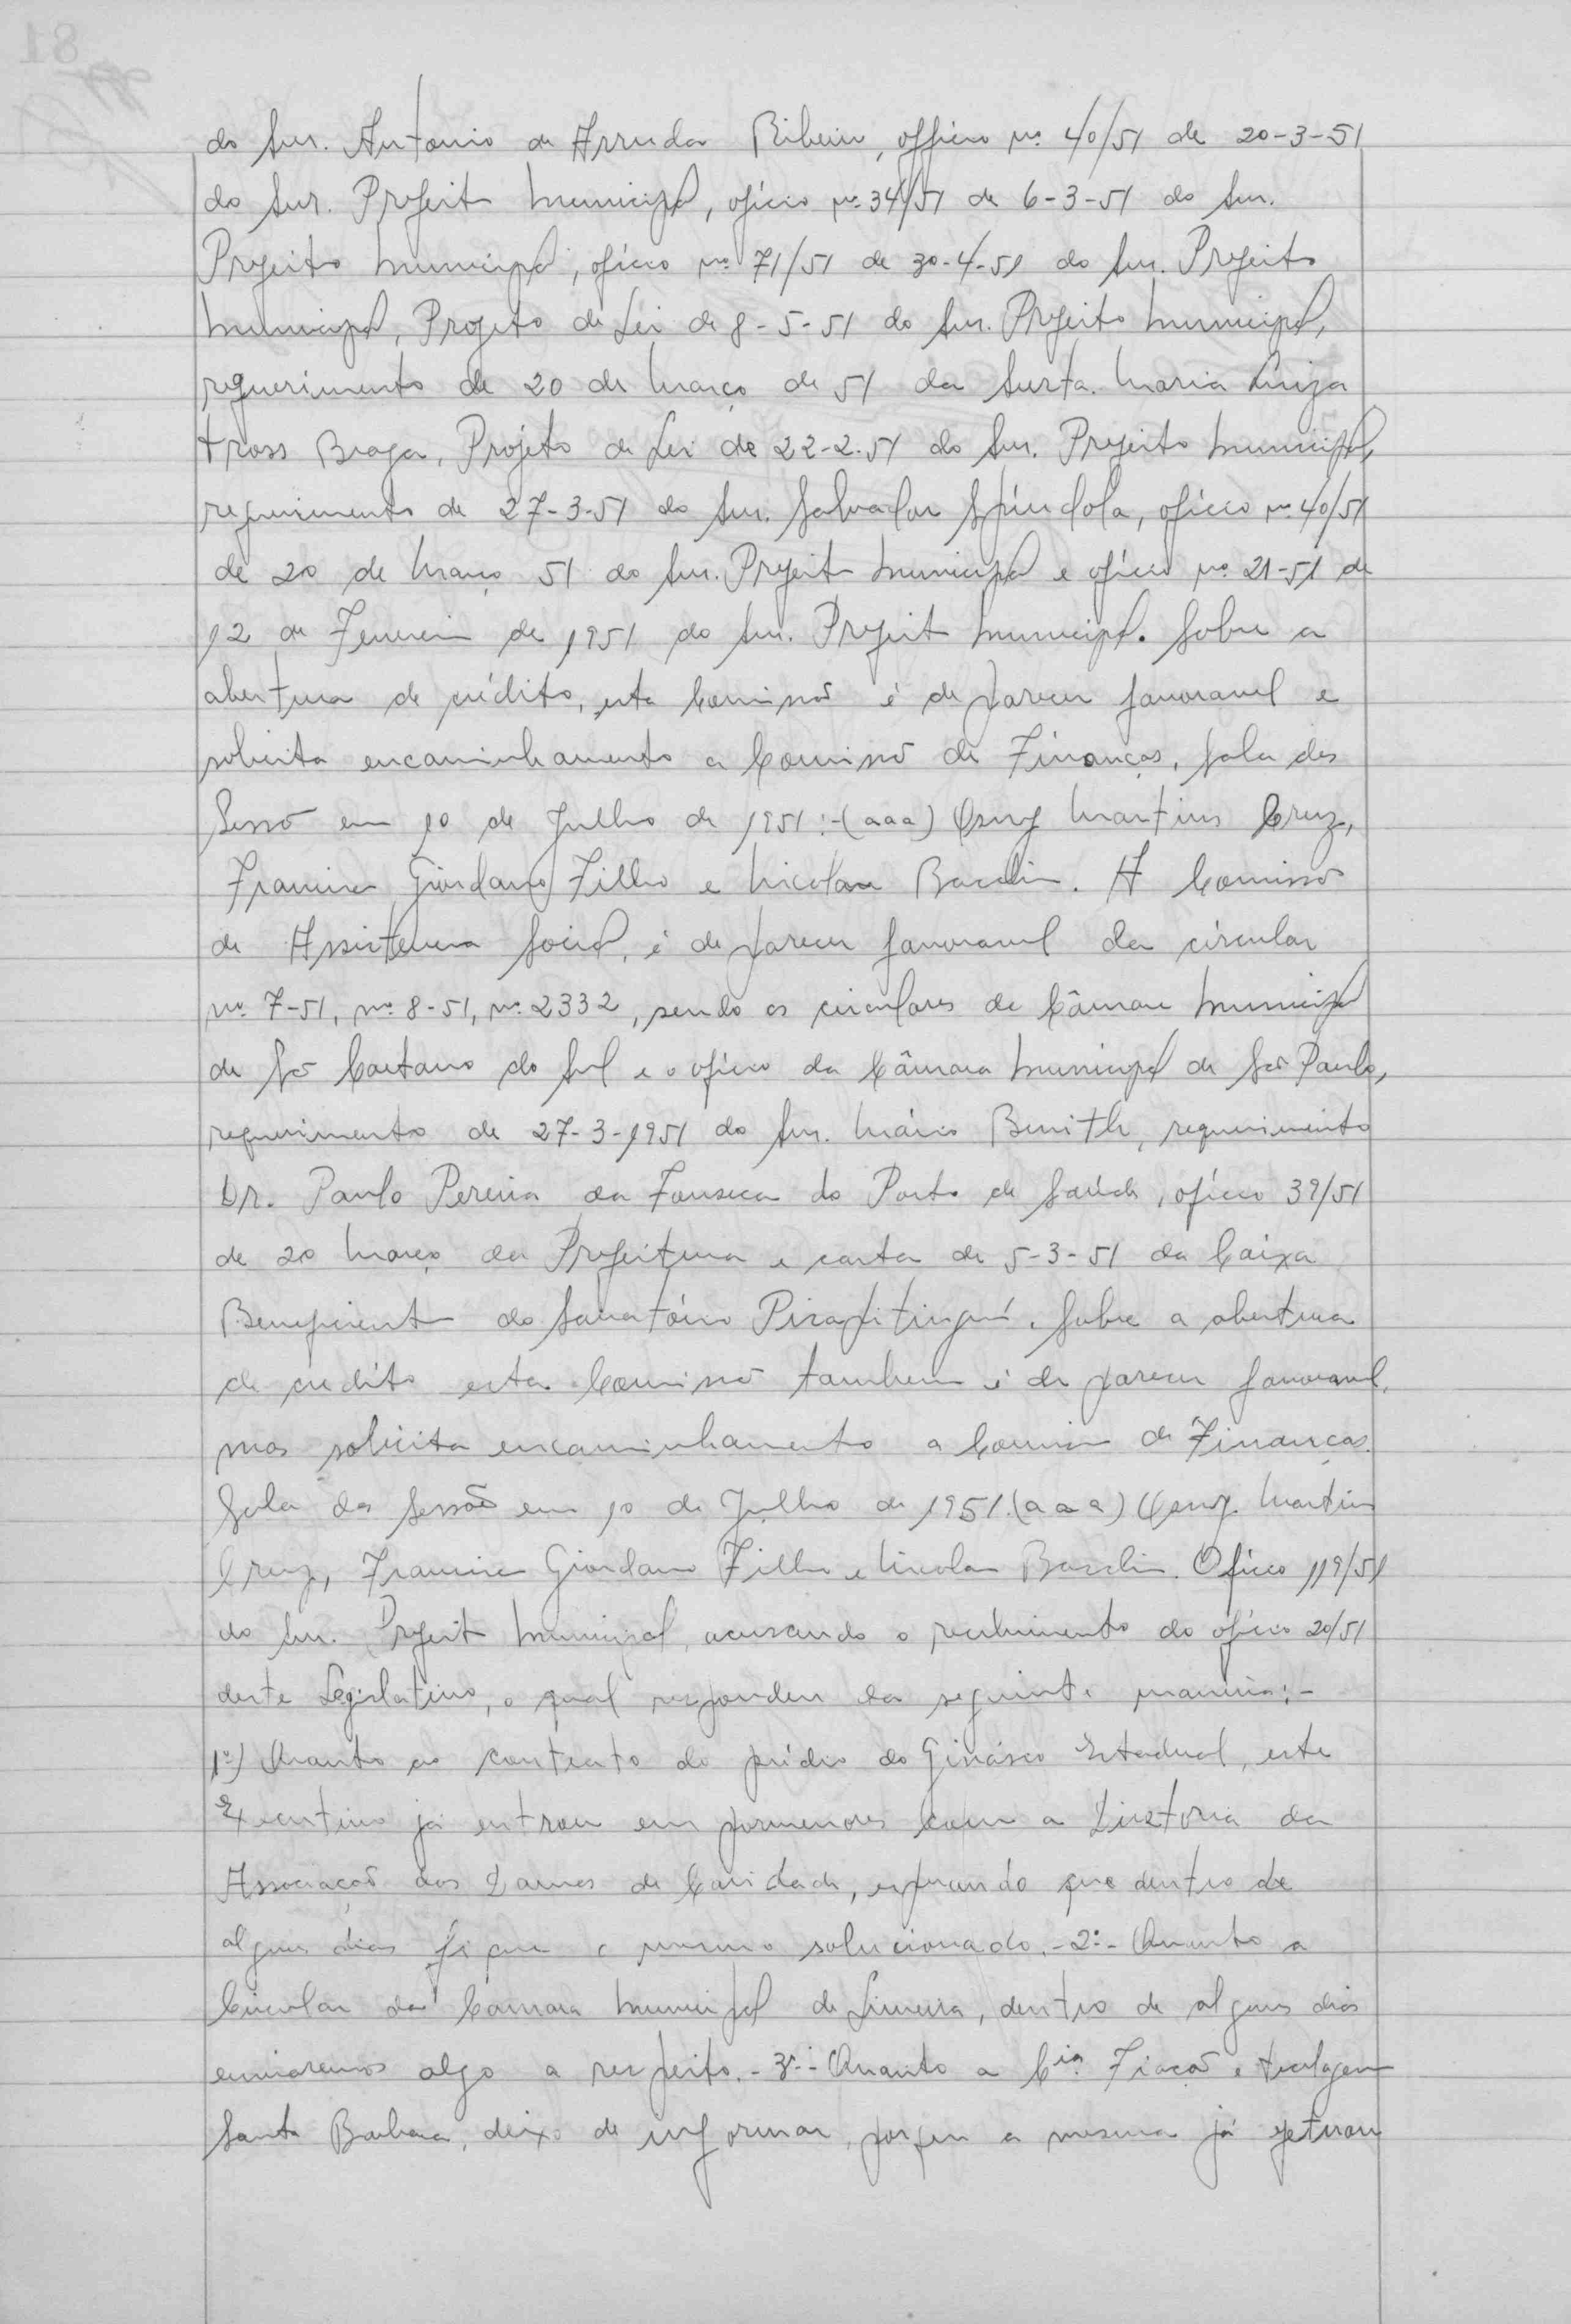 do Snr. Antonio de Arruda Ribeiro, officio nº 40/51 de 20-3-51
do Snr. Prefeito Municipal, ofício nº 34/51 de 6-3-51 do Snr.
Prefeito Municipal, ofício nº 71/51 de 30-4-51 do Snr. Prefeito
Municipal, Projeto de Lei de 8-5-51 do Snr. Prefeito Municipal,
requerimento de 20 de Março de 51 da Snrta. Maria Luiza
Braga, Projéto de Lei de 22-2-51 do Snr. Prefeito Municipal,
requerimento de 27-3-51 do Snr. Salvador Spíndola, ofício nº 40/51
de 20 de Março 51 do Snr. Prefeito Municipal e ofício nº 21-51 de
12 de Fevereiro de 1951 do Snr. Prefeito Municipal. Sobre a
abertura de crédito, esta Comissão é de parecer favoravel e
solicita encaminhamento a Comissão de Finanças, Sala das
Sessão em 10 de Julho de 1951:-(aaa) Martins Cruz,
Francisco Giordano Filho e Nicolau. A Comissão
de Assistencia Social, é de parecer favoravel da circular
nº 7-51, nº 8-51, nº 2332, sendo as circulares da Câmara Municipal
de São Caetano do Sul e o ofício da Câmara Municipal de São Paulo,
requerimento de 27-3-1951 do Snr. Mário Benith, requerimento
Dr. Paulo Pereira da Fonseca do Posto de Saúde, ofício 39/51
de 20 Março da Prefeitura e carta de 5-3-51 da Caixa
Beneficiente do Sanatório Pirapitinguí. Sobre a abertura
de crédito esta Comissão tambem é de parecer favoravel,
mas solicita encaminhamento a Comissão de Finanças.
Sala das Sessão em 10 de Julho de 1951.(aaa) Martins
Cruz, Francisco Giordano Filho e Nicolau. Ofício 119/51
do Snr. Prefeito Municipal, acusando o recebimento do ofício 20/51
deste Legislativo, o qual respondeu da seguinte maneira:-
1º) Quanto ao contrato do prédio do Ginásio Estadual, este
Executivo já entrou em pormenores com a Diretoria da
Associação das Damas de Caridade, esperando que dentro de
alguns dias fique o mesmo solucionado.-2º- Quanto a
Circular da Câmara Municipal de Limeira, dentro de alguns dias
enviaremos algo a respeito.-3º- Quanto a Cia. Fiação e Tecelagem
Santa Barbara, deixo de informar, porque a mesma já